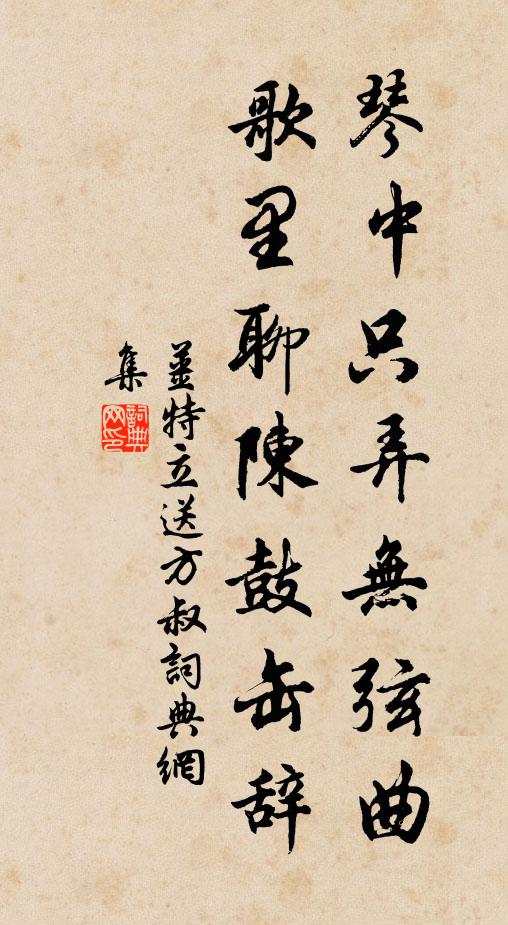 琴中只弄無弦曲
歌里聊陳鼓缶辞
姜特立送方叔詞典網
集
詞典网印